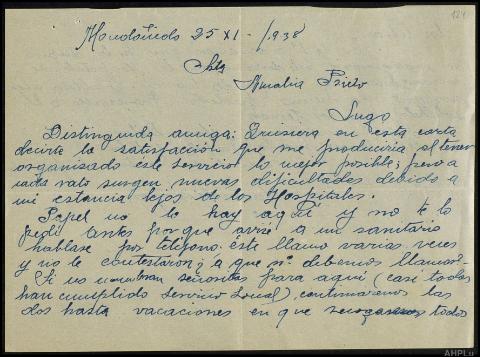 124
Mondoñedo 25 XI - 1938
Srta
Amalia Prieto
Lugo
Distinguida amiga: Quisiera en esta carta
decirte la satisfacción que me produciria el tener
organizado este servicio lo mejor posible; pero a
cada rato surgen nuevas dificultades debido a
mi estancia lejos de los Hospitales.
Papel no lo hay aquí y no te lo
pedi antes porque avisé a un sanitario
hablase por teléfono. este llamo varias veces
y no le contestaron; ¿a que nº debemos llamar?-
Si no nombran señoritas para aquí (casi todas
han cumplido Servicio Social), continuaremos las
dos hasta vacaciones en que todos
AHPLu